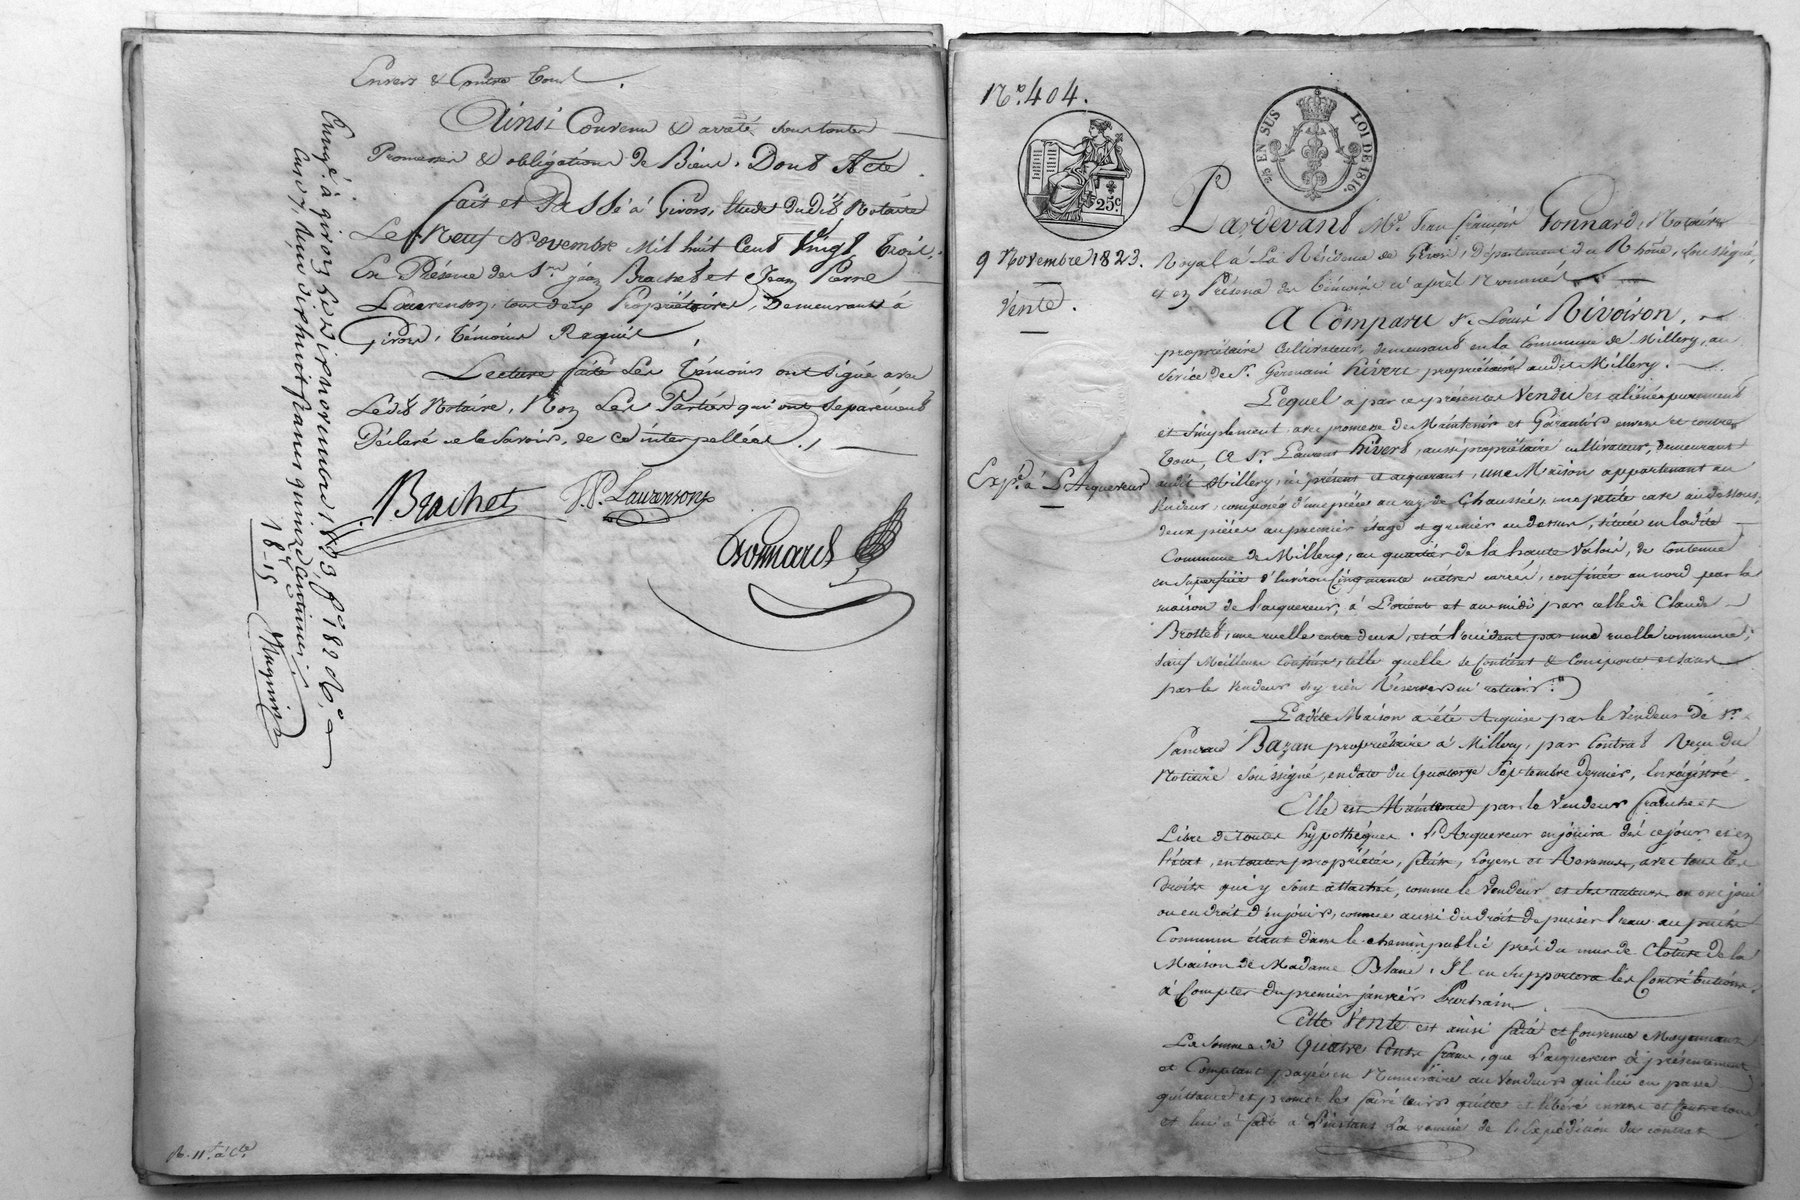 Envers & Contre tous.
Ainsi Convenu & arrêté sous toutes
Promesses & obligations de Biens. Dont Acte
fait et Passé à Givors, Etude dudit Notaire
Le Neuf Novembre Mil huit Cent Vingt Trois,
En Présence des Srs Jean Brachet et Jean Pierre
Laurenson, tous deux Propriétaires, Demeurants à
Givors, Témoins Requis
Lecture faite Les Témoins ont signé avec
Ledit Notaire, Non Les Parties qui ont séparément
Déclaré ne le Savoir, de ce interpellées ./.
Brachet
J.P. Laurenson
Gonnard
Enregé à givors le dix novembre 1823, fo 18
Reçu dix huit francs quinze centimes
18-15
R. 11 à Cte
No. 404.
25 EN SUS
LOI DE 1816.
25c
9 Novembre 1823.
Vente.
Expé. à L'Acquereur
Pardevant Me. Jean françois Gonnard, Notaire
Royal à La Résidence de Givors, Département du Rhône, soussigné,
et en Présence des témoins ci après Nommés
A Comparu sr. Louis Rivoiron,
propriétaire Cultivateur, demeurant en la Commune de Millery, au
service de Sr. Germain hivert propriétaire audit Millery.
Lequel a par ces présentes Vendu et aliéné purement
et simplement, avec promesse de Maintenir et Garantir envers et contre
tous, A Sr. Laurent hivert, aussi propriétaire cultivateur, demeurant
audit Millery, ici présent et acquerant, une Maison appartenant au
Vendeur, composée d'une pièce au rez de Chaussée, une petite cave au dessous,
deux pièces au premier étage et grenier au dessus, située en ladite
Commune de Millery, au quartier de la haute Valois, de Contenue
en superficie d'Environ Cinquante mètres carrés, confinée au nord par la
maison de l'acquereur, à L'orient et au midi par celle de Claude
Brottet, une ruelle entre deux, et à l'occident par une ruelle commune,
sauf Meilleurs Confins, telle qu'elle se Contient & Comporte et sans
par le Vendeur s'y rien Réserver ni retenir.
Ladite Maison a été Acquise par le Vendeur de Sr.
Pancrace Bazan propriétaire à Millery, par Contrat Reçu du
Notaire Soussigné, en date du Quatorze Septembre Dernier, Enrégistré.
Elle est Maintenue par le Vendeur franche et
Libre de toutes hypothèques. L'Acquereur en jouira dès ce jour et en
l'état, en toutes propriétés, fruits, Loyers et Revenus, avec tous les
droits qui y sont attachés, comme le Vendeur et ses auteurs en ont joui
ou eu droit d'en jouir, comme aussi du droit de puiser l'eau au puits
Commun étant dans le chemin public près du mur de Cloture de la
Maison de Madame Blanc. Il en Supportera les Contributions
à Compter du premier janvier Prochain
Cette Vente est ainsi faite et Convenue Moyennant
La Somme de Quatre Cents francs, que L'acquereur a présentement
et Comptant payée en Numéraire au Vendeur qui lui en passe
quittance et promet les faire tenir quitte et libéré envers et Contre tous
et lui a fait à l'instant La remise de l'Expédition du contrat